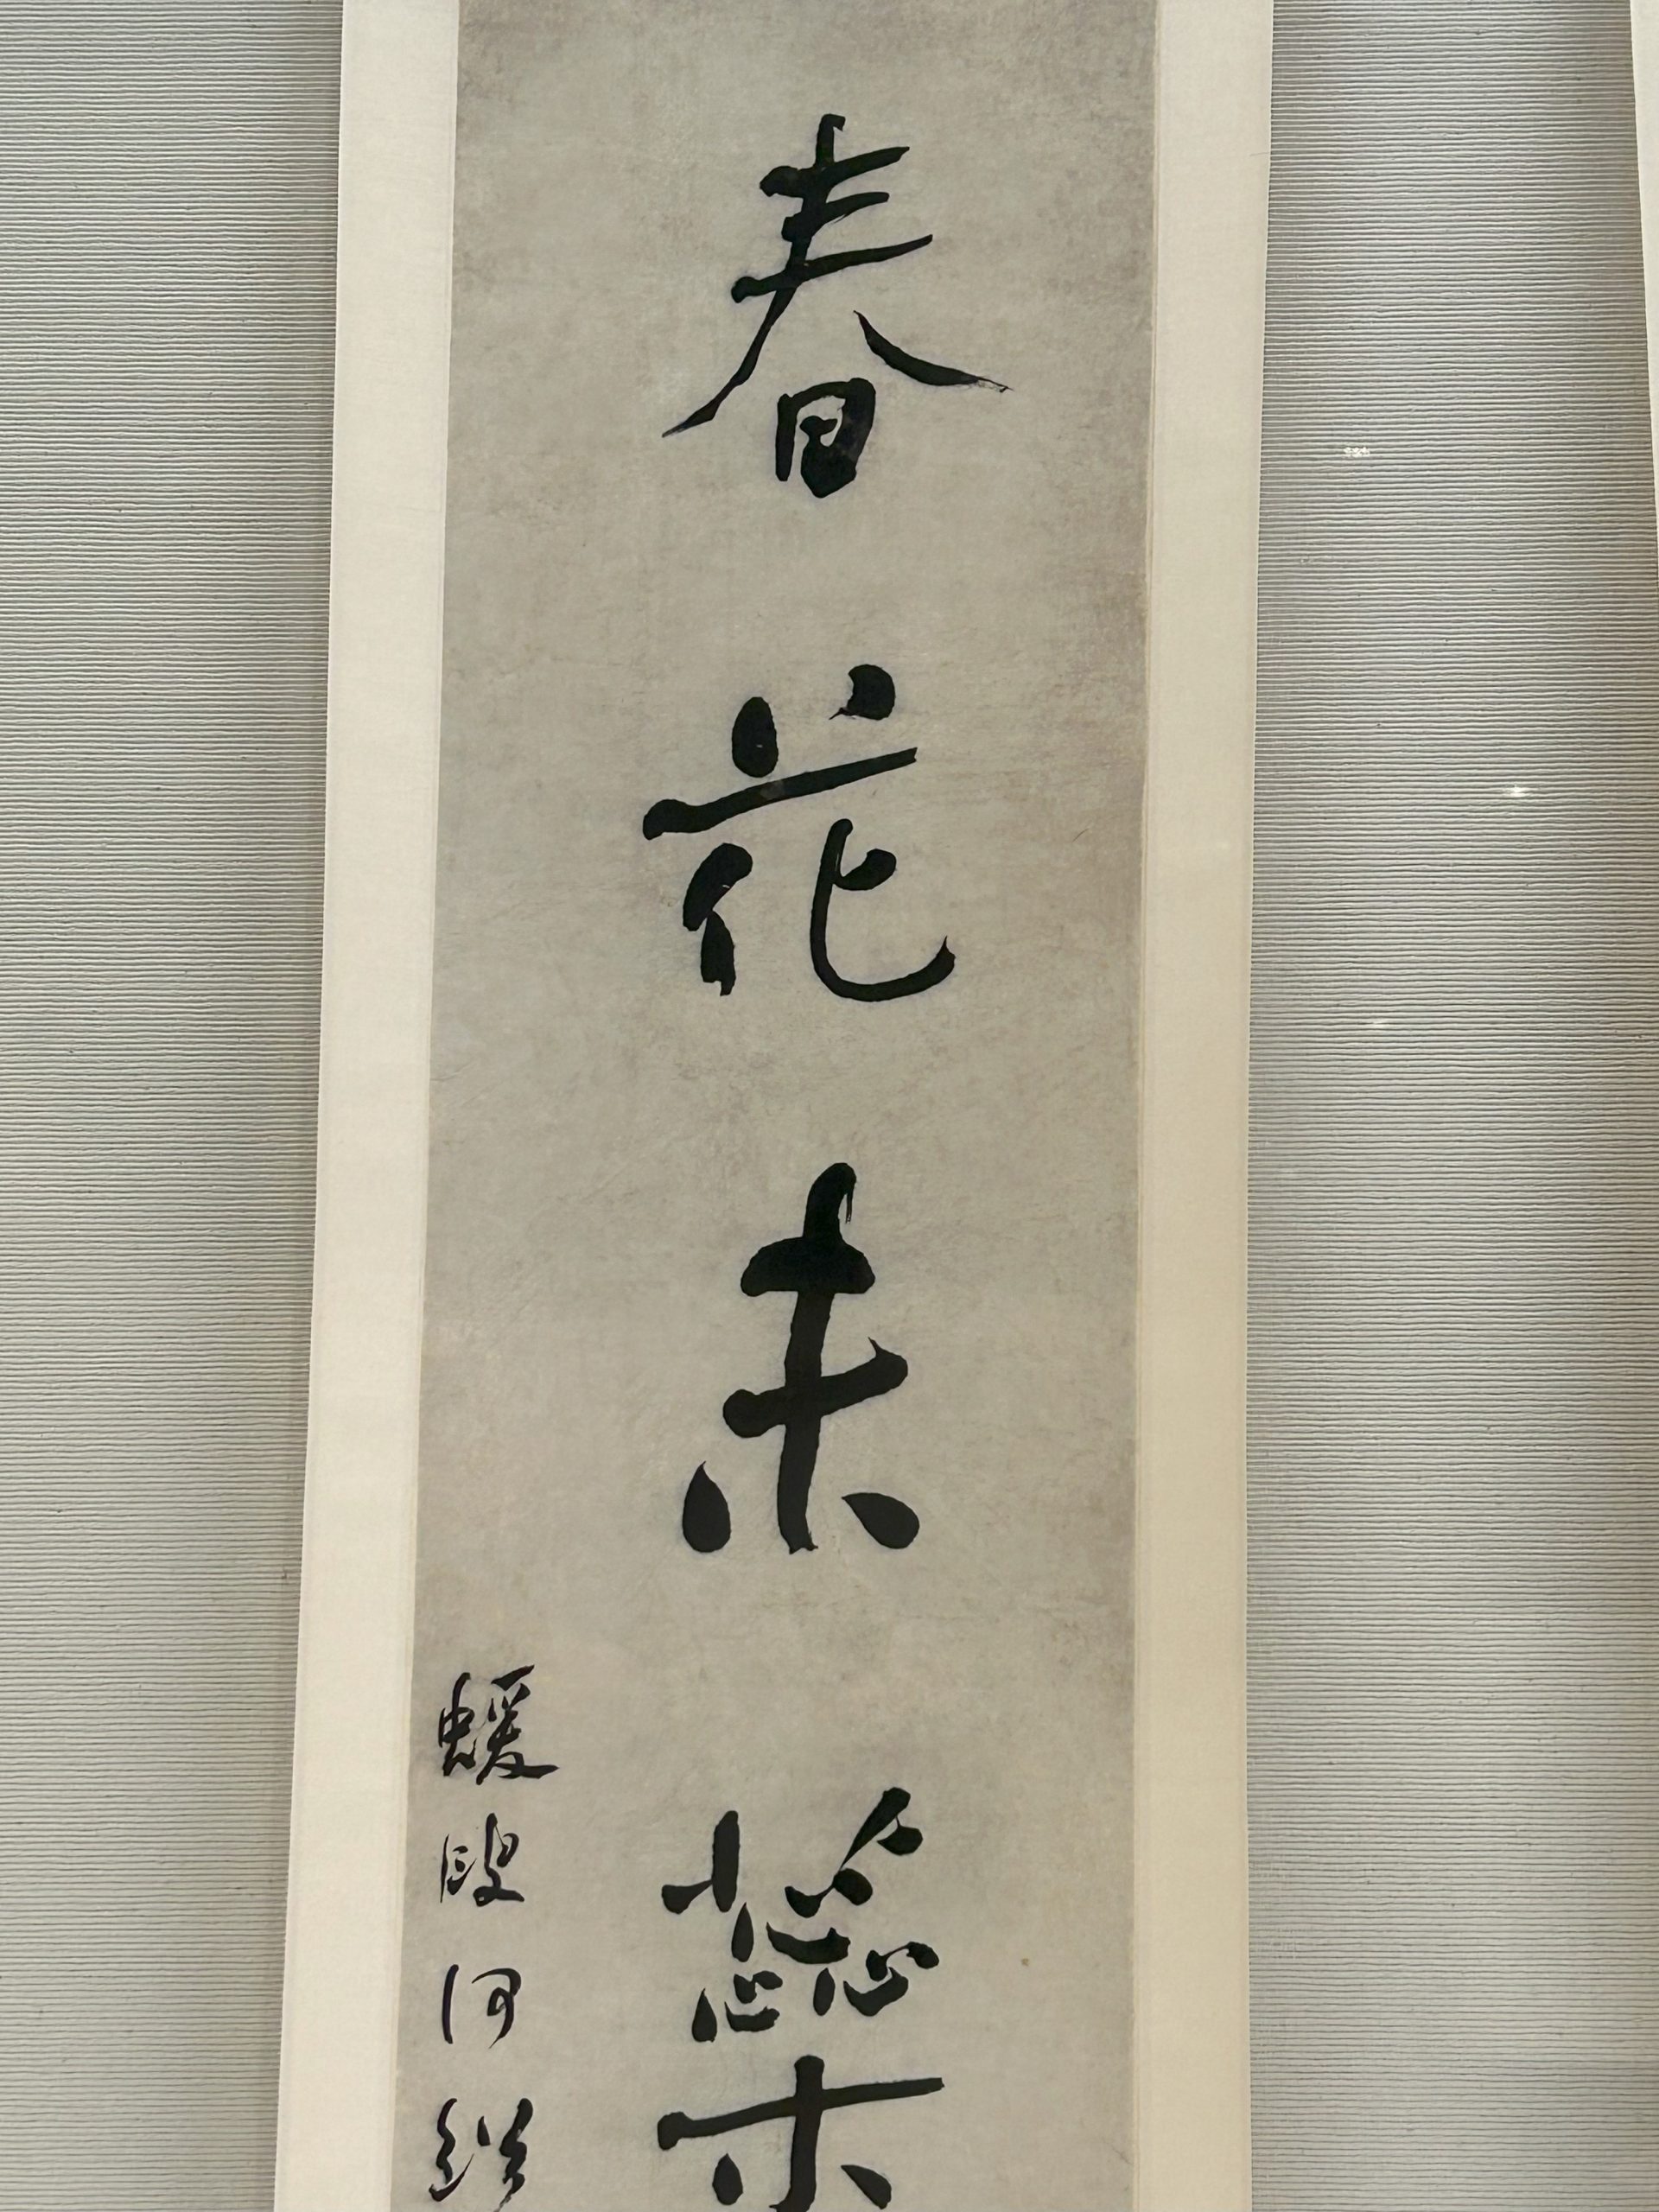 春花未蘂
蝯叟何紹